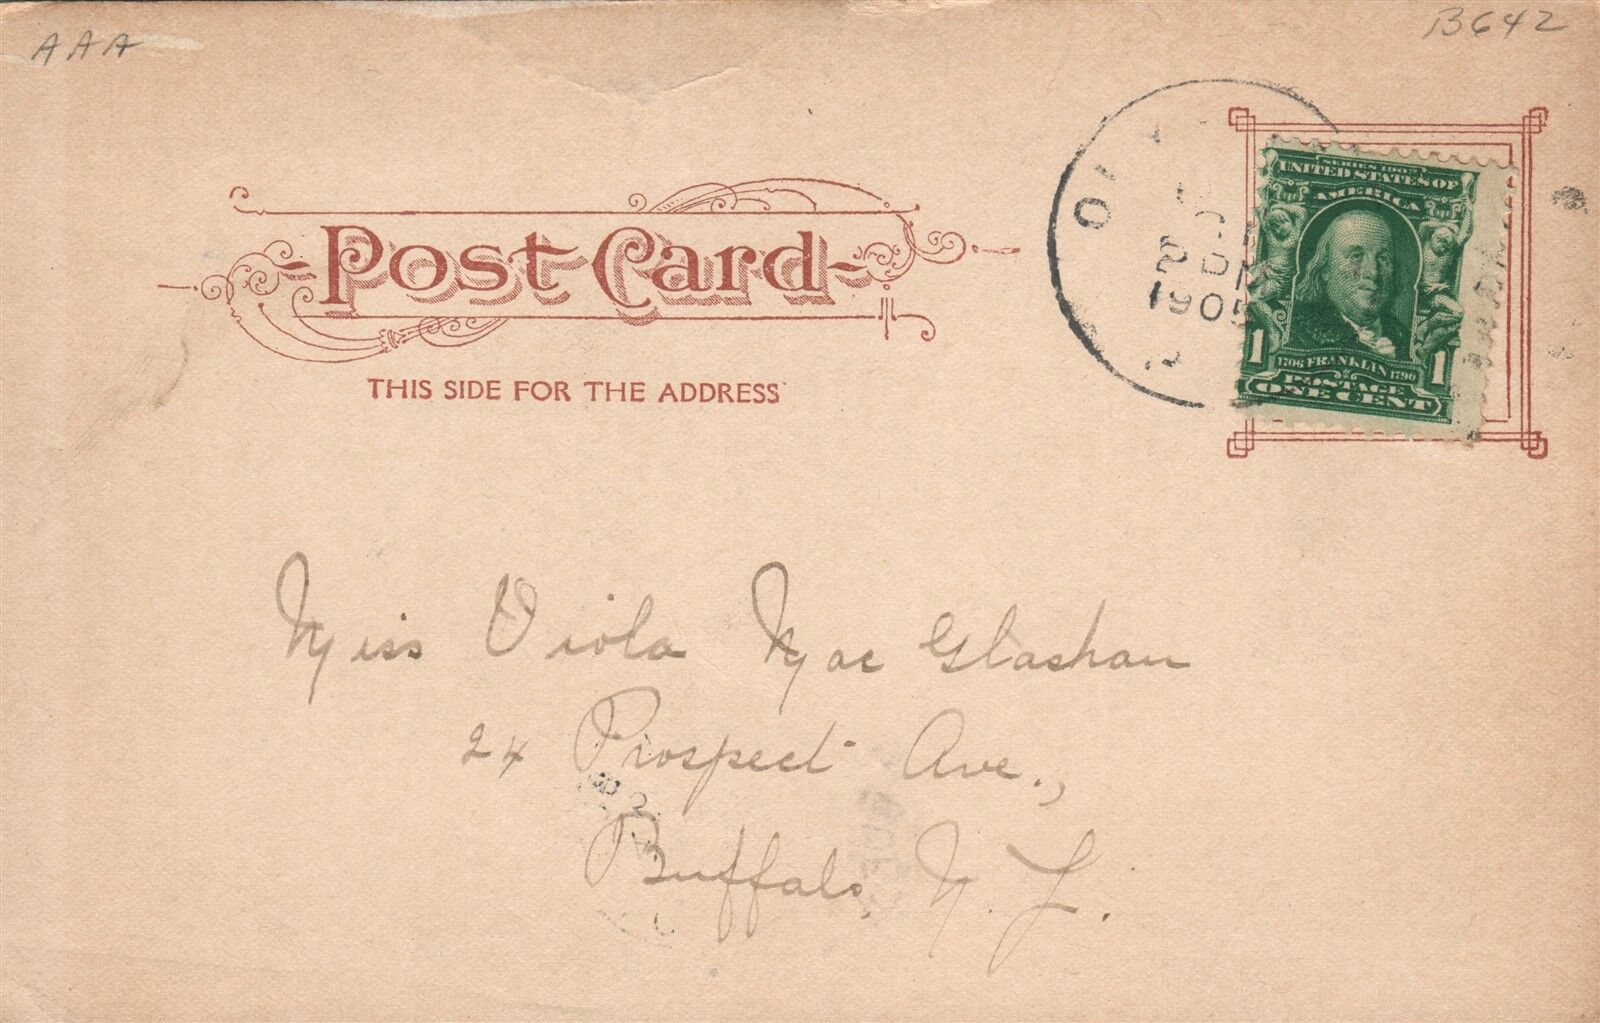 AAA
B642
Post Card
THIS SIDE FOR THE ADDRESS
2 PM
1905
SERIES 1902
UNITED STATES OF
AMERICA
1706 FRANKLIN 1790
1 POSTAGE 1
ONE CENT
Miss Viola Mac Glashan
24 Prospect Ave.,
Buffalo, N.Y.